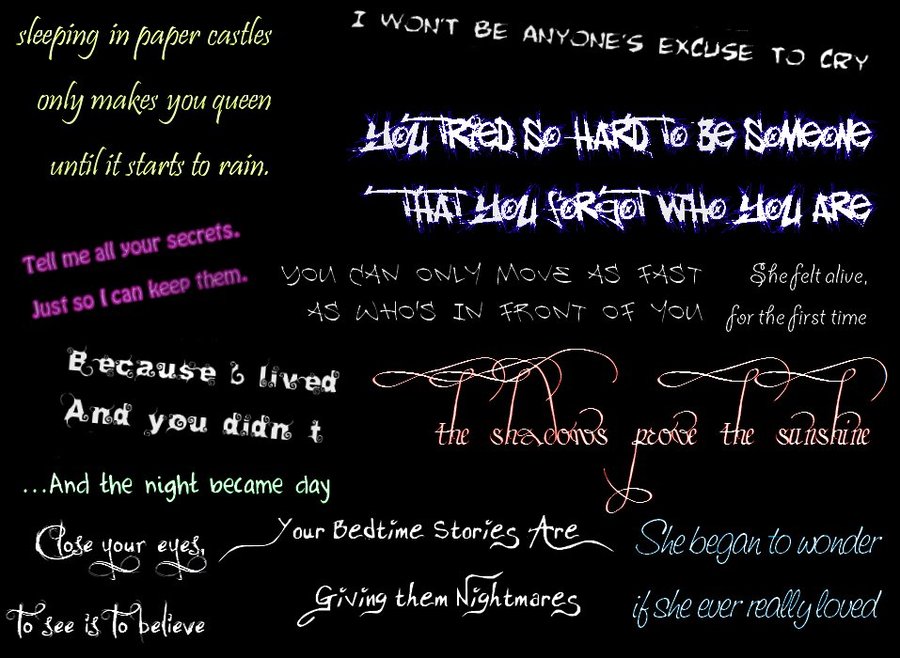 sleeping in paper castles
only makes you queen
until it starts to rain.
I WON'T BE ANYONE'S EXCUSE TO CRY
YOU TRIED SO HARD TO BE SOMEONE
THAT YOU FORGOT WHO YOU ARE
Tell me all your secrets.
Just so I can keep them.
YOU CAN ONLY MOVE AS FAST
AS WHO'S IN FRONT OF YOU
She felt alive,
for the first time
Because i lived
And you didn t
the shadows prove the sunshine
...And the night became day
Close your eyes,
To see is To believe
Your Bedtime Stories Are
Giving them Nightmares
She began to wonder
if she ever really loved